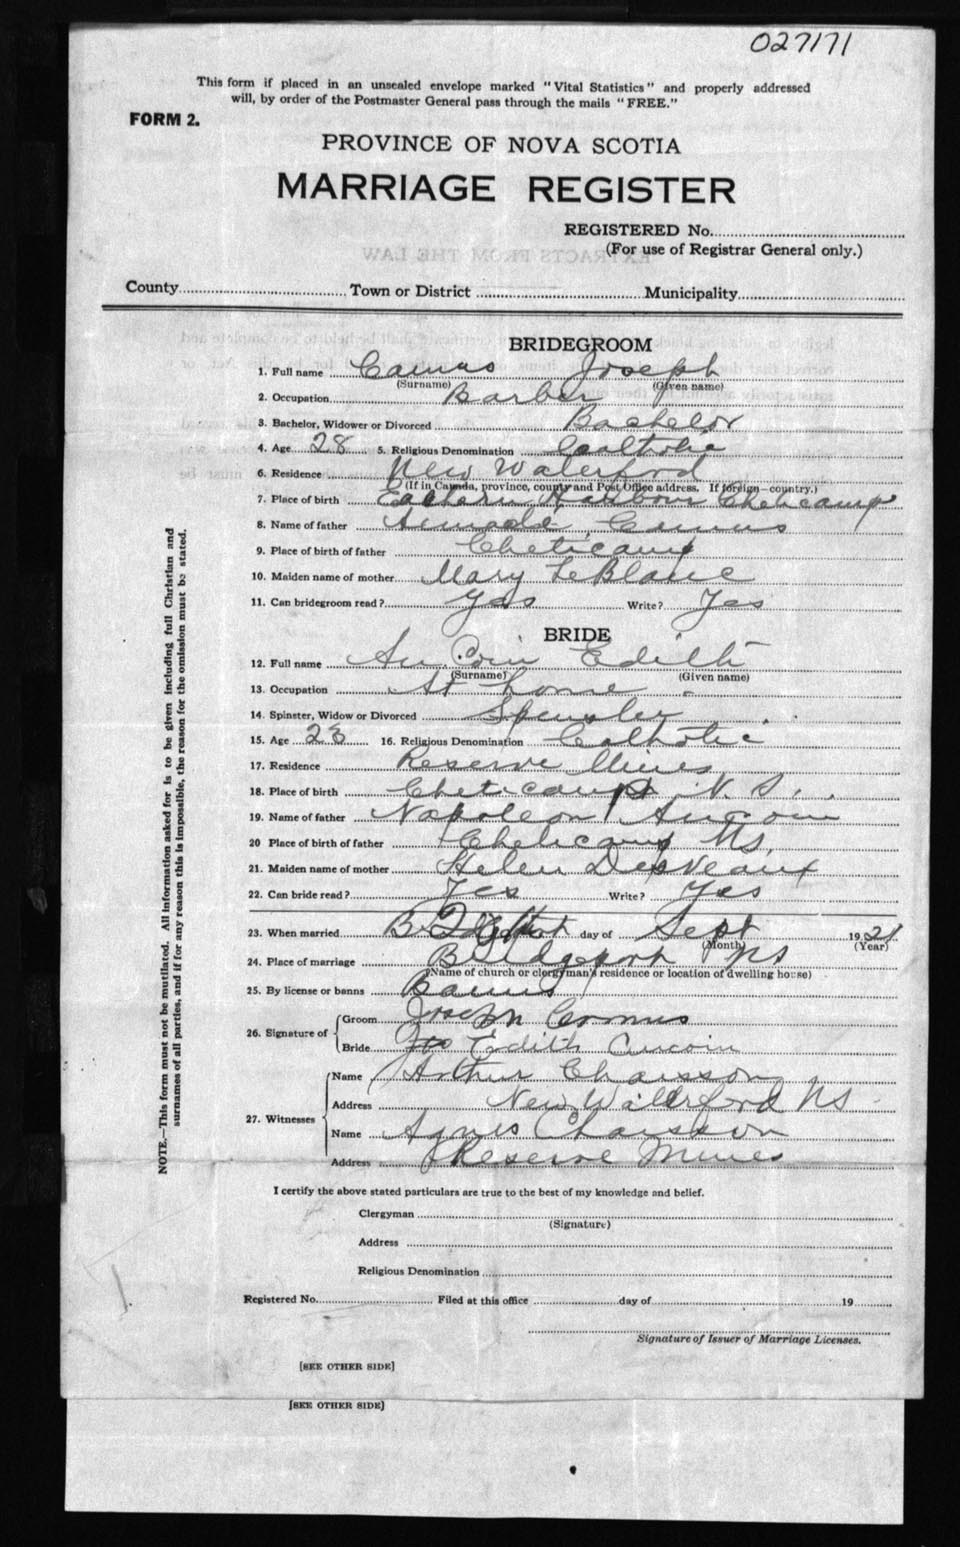 027171
This form if placed in an unsealed envelope marked "Vital Statistics" and properly addressed
will, by order of the Postmaster General pass through the mails "FREE."
FORM 2.
PROVINCE OF NOVA SCOTIA
MARRIAGE REGISTER
REGISTERED No.
(For use of Registrar General only.)
EXTRACTS FROM THE LAW
County Town or District Municipality
BRIDEGROOM
1. Full name Camus Joseph
(Surname) (Given name)
2. Occupation Barber
3. Bachelor, Widower or Divorced Bachelor
4. Age 28 5. Religious Denomination Caltholic
6. Residence New Waterford
(If in Canada, province, county and Post Office address. If foreign—country.)
7. Place of birth Eastern Harbour Cheticamp
8. Name of father Camus
9. Place of birth of father Cheticamp
10. Maiden name of mother Mary LeBlanc
11. Can bridegroom read? Yes Write? Yes
BRIDE
12. Full name Au Coin Edith
(Surname) (Given name)
13. Occupation At home
14. Spinster, Widow or Divorced
15. Age 23 16. Religious Denomination Catholic
17. Residence Reserve Mines
18. Place of birth Cheticamp N. S.
19. Name of father Napoleon Aucoin
20 Place of birth of father Cheticamp NS.
21. Maiden name of mother Helen DesVeaux
22. Can bride read? Yes Write? Yes
23. When married day of Sept 1921
(Month) (Year)
24. Place of marriage Bridgeport NS
(Name of church or clergyman's residence or location of dwelling house)
25. By license or banns Banns
26. Signature of Groom Joseph Cormus
Bride Edith Aucoin
27. Witnesses Name Arthur Chaisson
Address New Waterford NS
Name Agnes Chaisson
Address Reserve Mines
I certify the above stated particulars are true to the best of my knowledge and belief.
Clergyman
(Signature)
Address
Religious Denomination
Registered No. Filed at this office day of 19
Signature of Issuer of Marriage Licenses.
[SEE OTHER SIDE]
[SEE OTHER SIDE]
NOTE.—This form must not be mutilated. All information asked for is to be given including full Christian and
surnames of all parties, and if for any reason this is impossible, the reason for the omission must be stated.